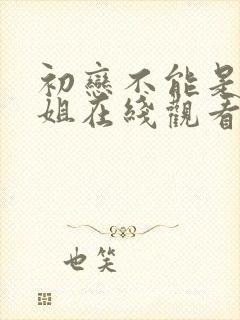 初戀不能是
姐在綫觀看
也笑